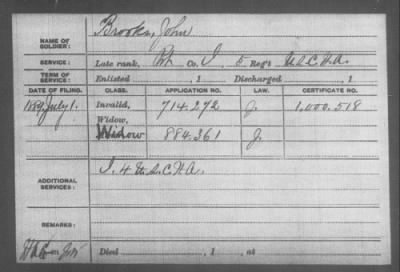 NAME OF SOLDIER: Brooks, John
SERVICE: Late rank, Pvt Co. I, 5 Reg't U.S.C.H.A.
TERM OF SERVICE: Enlisted , 1 Discharged , 1
DATE OF FILING. CLASS. APPLICATION NO. LAW. CERTIFICATE NO.
1889, July 1. Invalid, 714.272 J. 1,000.518
Widow,
Widow 884.361 J.
ADDITIONAL SERVICES: I. 4 U.S.C.H.A.
REMARKS:
Died , 1 , at